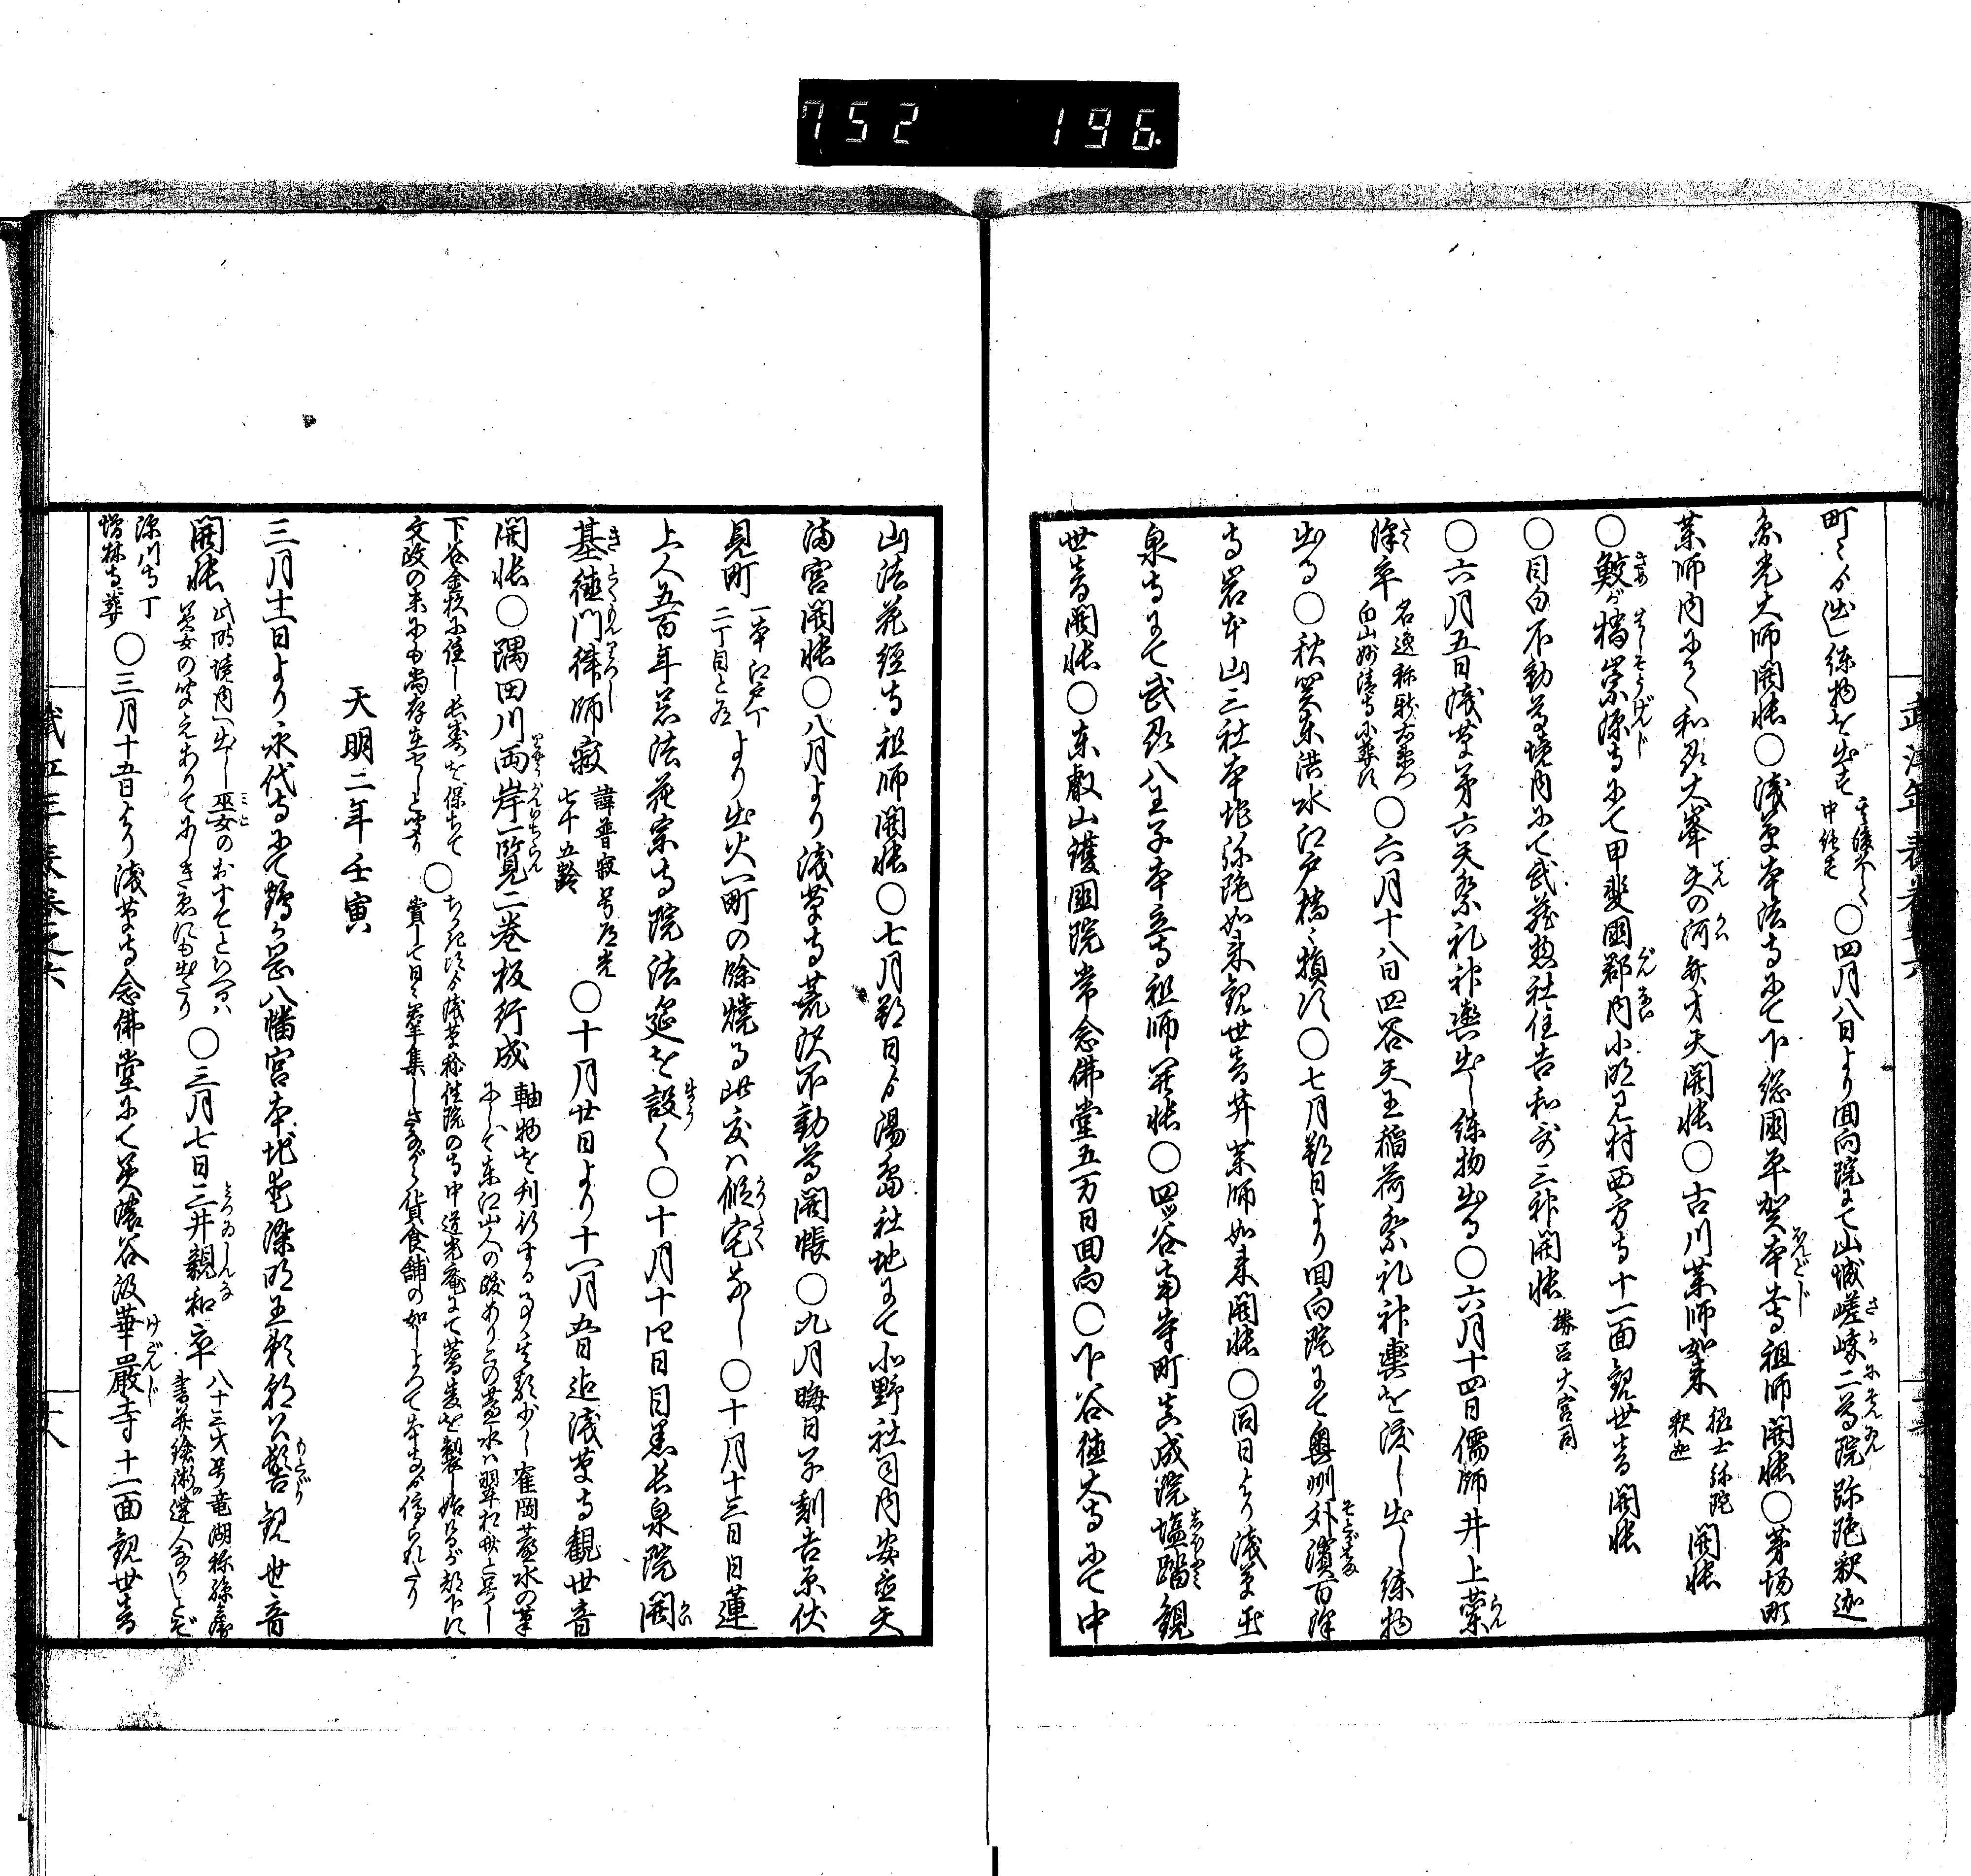 752 196.
武江年表巻之六
町々より出し練物を出す 其後久しく中絶せり ○四月八日より回向院にて山城嵯峨二尊院弥陀釈迦
円光大師開帳○浅草本法寺にて下総国平賀本土寺祖師開帳○茅場町
薬師内にて和州大峯天の河弁才天開帳○古川薬師如来 弥陀釈迦 開帳
○鮫が橋崇源寺にて甲斐国郡内小明見村西方寺十一面観世音開帳
○目白不動尊境内にて武蔵惣社住吉和哥三神開帳 勝呂大宮司
○六月五日浅草第六天祭礼神輿出し練物出る○六月十四日儒師井上蘭
○六月十八日四谷天王稲荷祭礼神輿を渡し出し練物
出る○秋関東洪水江戸橋々損ず○七月朔日より回向院にて奥州外濱百沢
寺岩木山三社本地弥陀如来観世音并薬師如来開帳○同日より浅草玉
泉寺にて武州八王子本立寺祖師開帳○四ッ谷南寺町真成院塩踏観
世音開帳○東叡山護国院常念佛堂五万日回向○下谷徳大寺にて中
山法花経寺祖師開帳○七月朔日より湯島社地にて小野社司内安置天
満宮開帳○八月より浅草寺荒沢不動尊開帳○九月晦日子刻吉原伏
見町 一本江戸丁二丁目と有 より出火一町の餘焼る此度は假宅なし○十月十三日日蓮
上人五百年忌法花宗寺院法筵を設く○十月十四日目黒長泉院開
基徳門律師寂 諱普寂号道光七十五齢 ○十月廿日より十一月五日迄浅草寺観世音
開帳○隅田川両岸一覧二巻板行成 軸物を刊行する事其類少し崔岡蘆水の筆にして東江山人の跋あり
下谷金杉に住し長寿を保ちて文政の末にも尚存在せしと聞り ○
賞して日々群集しさながら貨食舗の如しよつて本寺より停られたり
天明二年壬寅
三月十一日より永代寺にて鶴が岡八幡宮本地愛染明王頼朝公髻観世音
開帳 此時境内へ出し巫女のおすてといへるは美女の聞えありてにしき画にも出たり ○三月七日三井親和卒 八十三才号竜湖称孫兵衛書并絵術の達人なりしとぞ
深川寺丁増林寺葬 ○三月十五日より浅草寺念佛堂にて美濃谷汲華嚴寺十一面観世音